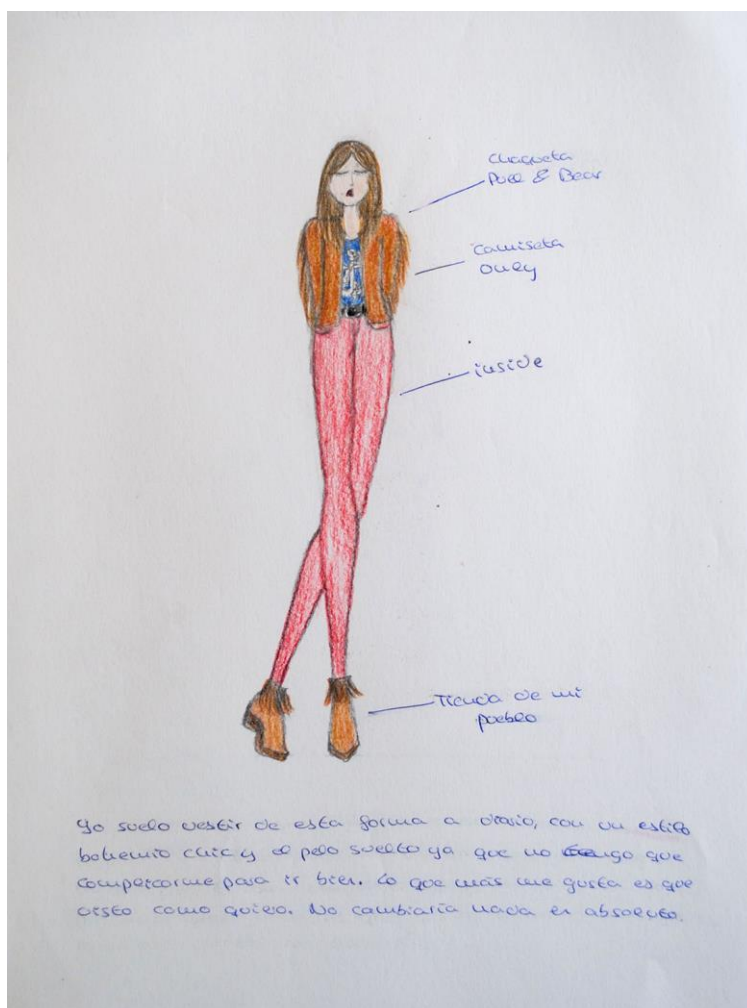 Chaqueta
Pull & Bear
Camiseta
Only
inside
Tienda de mi
pueblo
Yo suelo vestir de esta forma a diario, con un estilo
bohemio chic y el pelo suelto ya que no tengo que
complicarme para ir bien. Lo que más me gusta es que
visto como quiero. No cambiaría nada en absoluto.